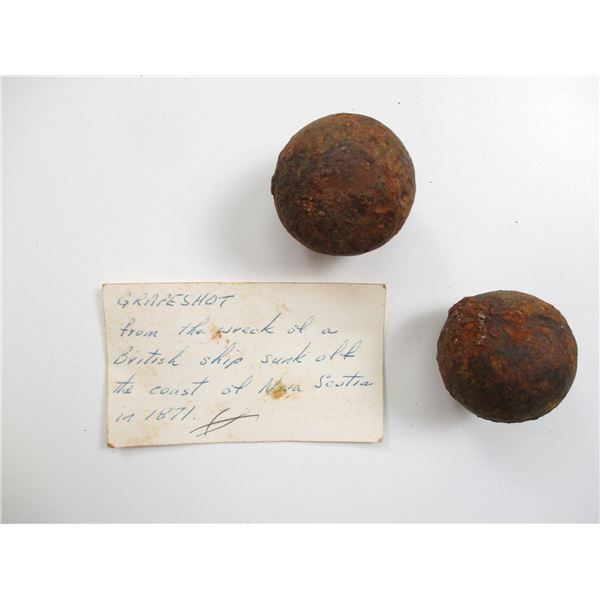 GRAPESHOT
from the wreck of a
British ship sunk off
the coast of Nova Scotia
in 1871.